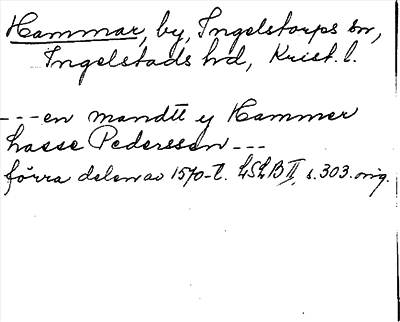 Hammar, by, Ingelstorps sn,
Ingelstads hd, Krist. l.
---en mandtt y Hammer
hasse Pederssøn ---
förra delen av 1570-t. LSLB II, s. 303. orig.